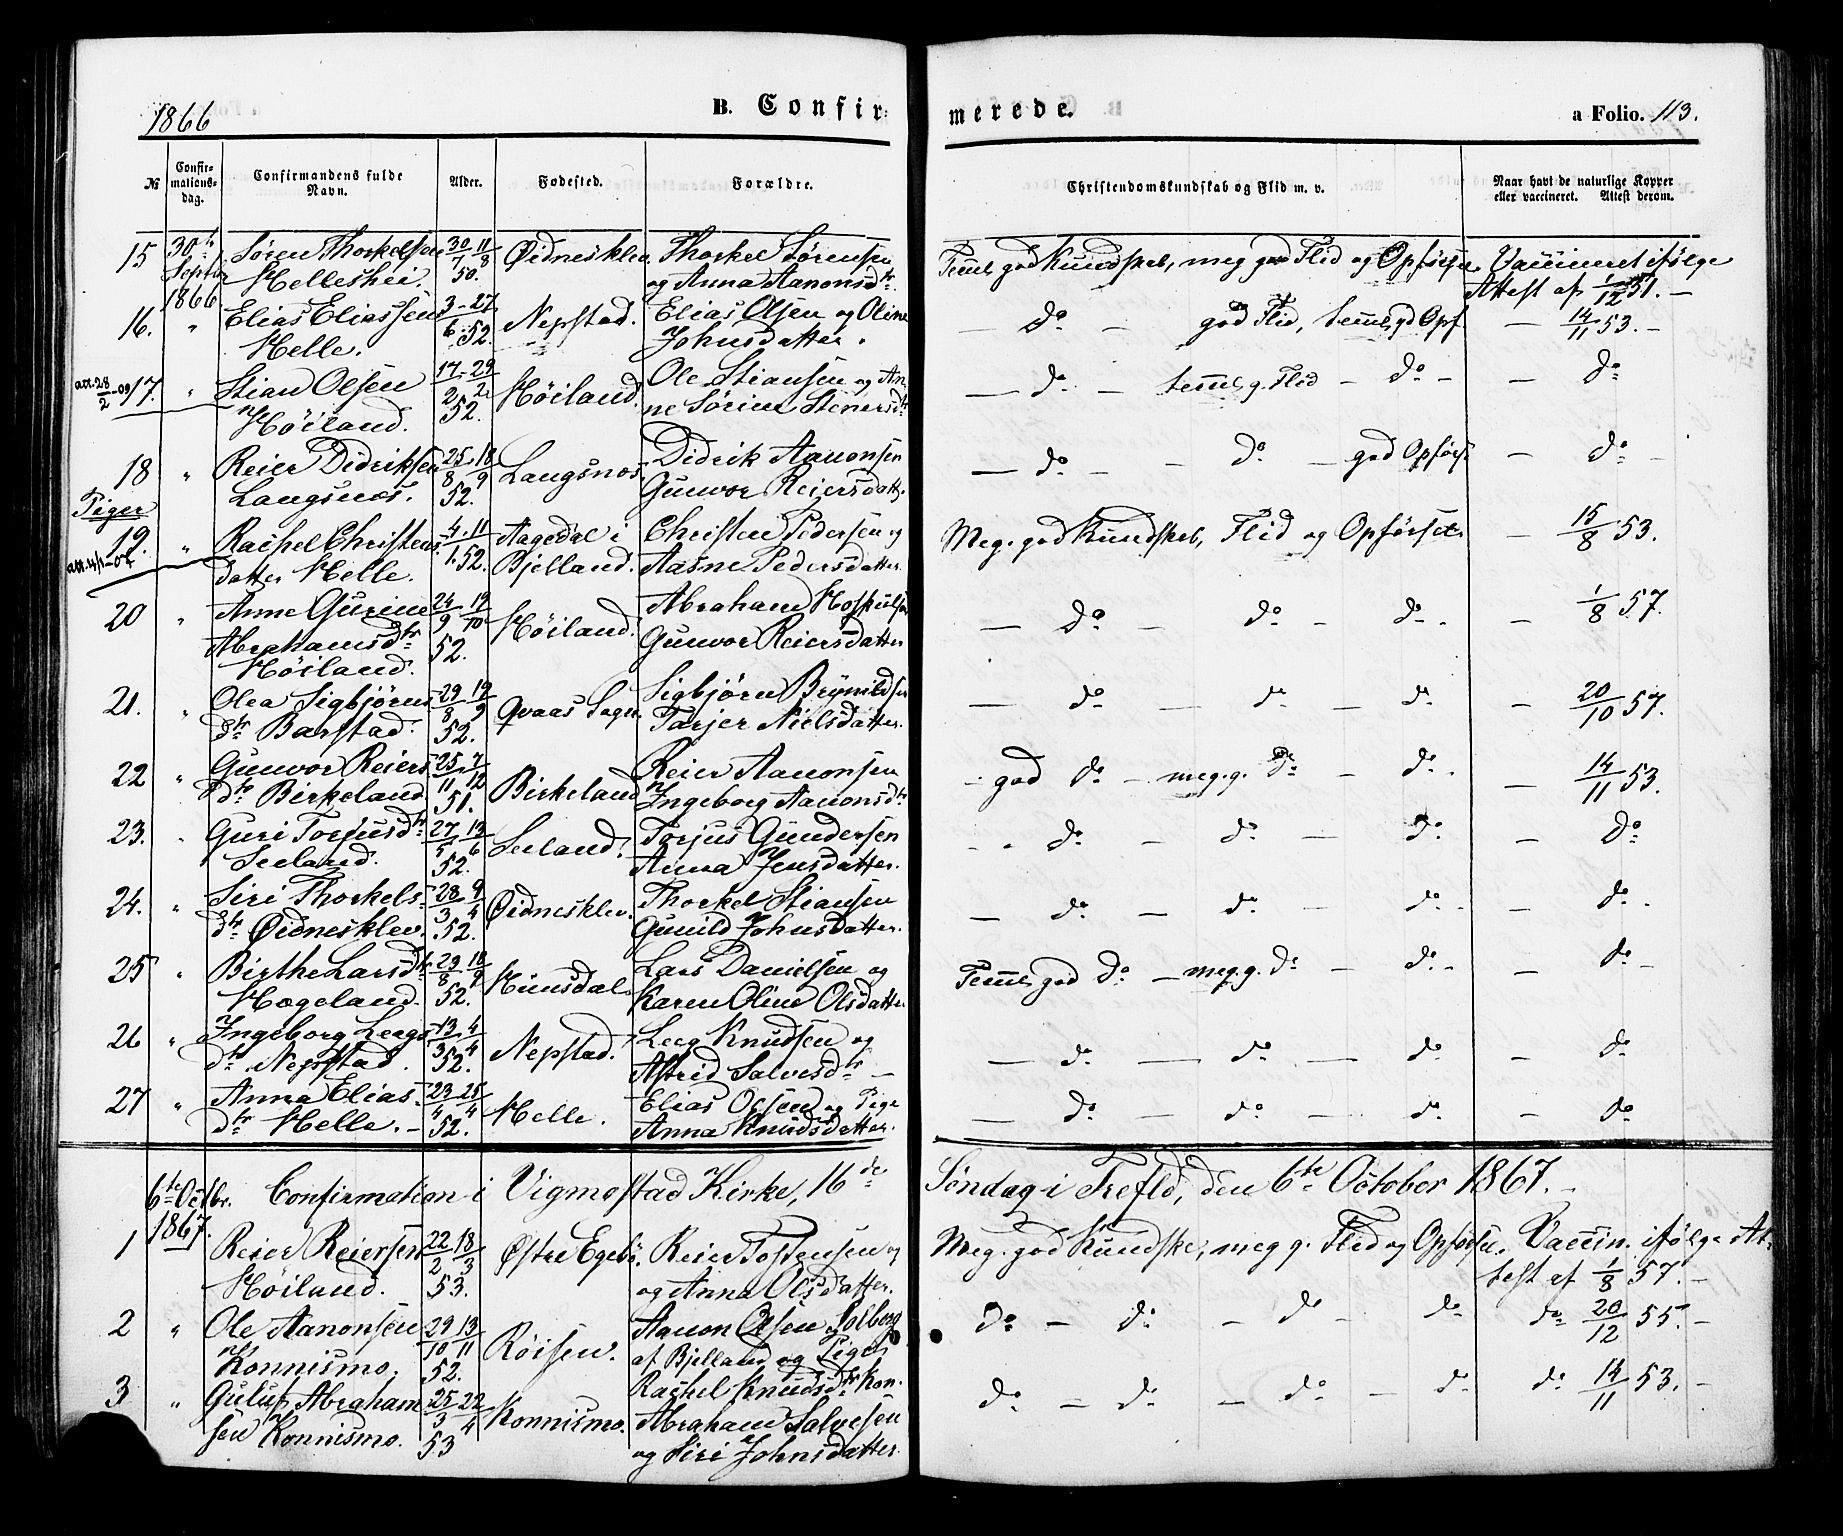 1866
B. Confirmerede.
a Folio. 113.
№ Confirmationsdag. Confirmandens fulde Navn. Alder. Fødested. Forældre. Christendomskundskab og Flid m. v. Naar havt de naturlige Kopper eller vaccineret. Attest derom.
15 30te Septbr 1866 Søren Thorkelsen Helleshei. 30/7 11/8 50. Øidnesklev Thorkel Sørensen og Anna Aanonsdtr. Temel. god Kundskab, meg god Flid og Opførsel. Vaccineret ifølge Attest af 1/12 51. —
16. " Elias Eliassen Helle. 3/6 - 27/ 52. Nepstad. Elias Olsen og Oline Johnsdatter. — do — god Flid, temel. gd Opf. — 14/11 53. —
att. 28/2-09 17. " Stian Olsen Høiland. 17/2 - 29/2 52. Høiland. Ole Stiansen og Anne Sørine Stenersdtr — do — temel. g. Flid — do — — do
18 " Reier Didriksen Langsnos. 25/8 18/9 52. Langsnos. Didrik Aanonsen Gunvor Reiersdatter. — do — — do — god Opførs. — do —
Piger
19. " Rachel Christensdatter Helle. 4 - 11/1 52. Aagedal i Bjelland. Christen Pedersen og Aasne Pedersdatter. Meg. god Kundskab, Flid og Opførsel. — 15/8 53.
20 " Anne Gurine Abrahamsdtr Høiland. 24/9 19/10 52. Høiland. Abraham Gunvor Reiersdatter — do — do — do — — 1/8 57.
21. " Olea Sigbjørnsdtr Barstad. 29/8 19/9 52. Qvaas Sogn. Sigbjørn Brynildsen Tarjer Nielsdatter. — do — do — do — 20/10 57.
22 " Gunvor Reiersdtr Birkeland 25/11 7/12 51. Birkeland Reier Aanonsen Ingeborg Aanonsdtr - god do — meg. g. do — do — — 14/11 53.
23. " Guri Torjusdtr Seeland. 27/5 13/6 52. Seeland. Torjus Gundersen Anna Jensdatter. — do — do — do — do
24. " Siri Thorkelsdtr Øidnesklev. 28/3 9/4 52. Øidnesklev. Thorkel Stiansen Gunild Johnsdatter. — do — do — do — — do —
25 " Birthe Larsdtr Hægeland. 29/8 18/9 52. Hunsdal. Lars Danielsen og Karen Oline Olsdatter Temel. god do — meg. g. do — do — — do —
26 " Ingeborg Leegsdtr Nepstad. 13/3 4/4 52. Nepstad. Leeg Knudsen og Astrid Salvesdtr — — do — do — do — do
27 " Anna Eliasdtr Helle. — 23/4 25/4 52. Helle. Elias Olsen og Pige Anna Knudsdatter. — do — do — do — do
6te Octbr. 1867. Confirmation i Vigmostad Kirke, 16de Søndag i Trefld, den 6te October 1867. —
1 Reier Reiersen Høiland. 22/2 18/3 53. Østre Egeb. Reier Tostensen og og Anna Olsdatter. Meg. god Kundsk., meg g. Flid og Opførsel. Vaccin. ifølge Attest af 1/8 57. —
2 " Ole Aanonsen Konnismo. 29/10 13/11 52. Røisen. Aanon Olsen Solborg af Bjelland og Pige Rachel Knudsdtr Kon. do — do — do — do do 20/12 55. —
3 " Guluf Abrahamsen Konnismo. 25/3 22/4 53 Konnismo. Abraham Salvesen og Siri Johnsdatter. do — do — do — do do 14/11 53. —